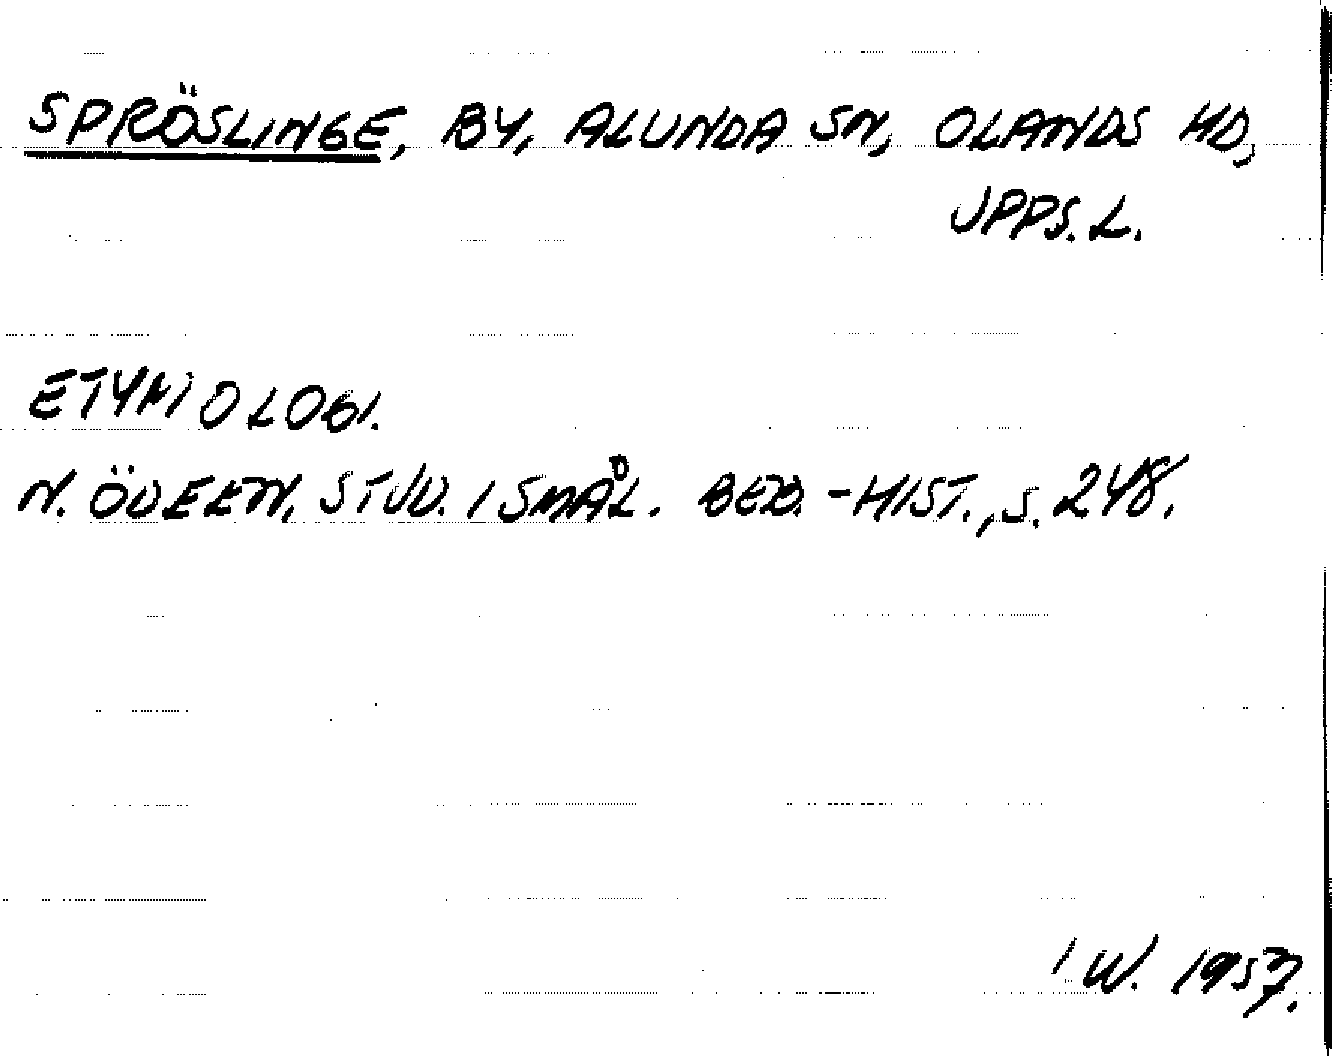 SPRÖSLINGE, BY, ALUNDA SN, OLANDS HD,
UPPS. L.
ETYMOLOGI.
N. ÖDEEN, STUD. I SMÅL. BEB.-HIST., S. 248.
I W. 1957.